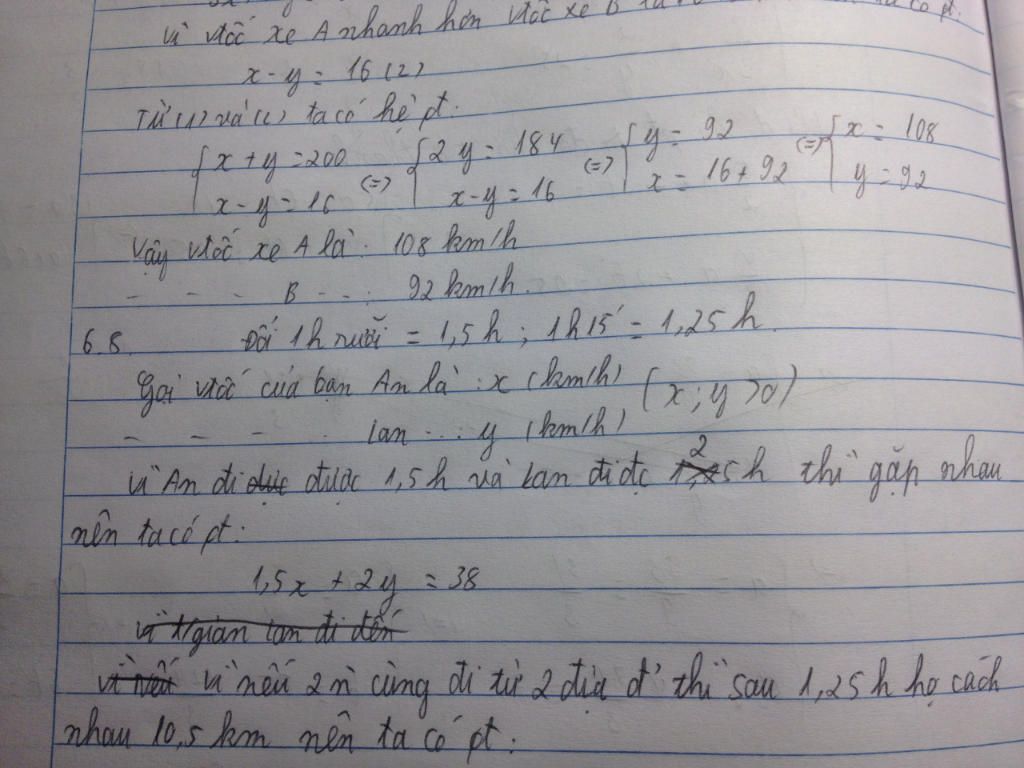 vì vtốc xe A nhanh hơn vtốc xe B ta có pt.
x - y = 16 (2)
Từ (1) và (2) ta có hệ pt.
{ x + y = 200 (=) { 2y = 184 (=) { y = 92 (=) { x = 108
x - y = 16 x - y = 16 x = 16 + 92 y = 92
Vậy vtốc xe A là: 108 km/h
- - - B - - : 92 km/h.
6.8. Đổi 1h rưỡi = 1,5 h ; 1h15' = 1,25 h.
Gọi vtốc của bạn An là : x (km/h) (x ; y > 0)
- - - . Lan . . : y (km/h)
vì An đi được 1,5 h và Lan đi đc 2 h thì gặp nhau
nên ta có pt:
1,5x + 2y = 38
vì t/gian Lan đi đến
vì nếu vì nếu 2 n cùng đi từ 2 địa đ' thì sau 1,25 h họ cách
nhau 10,5 km nên ta có pt :